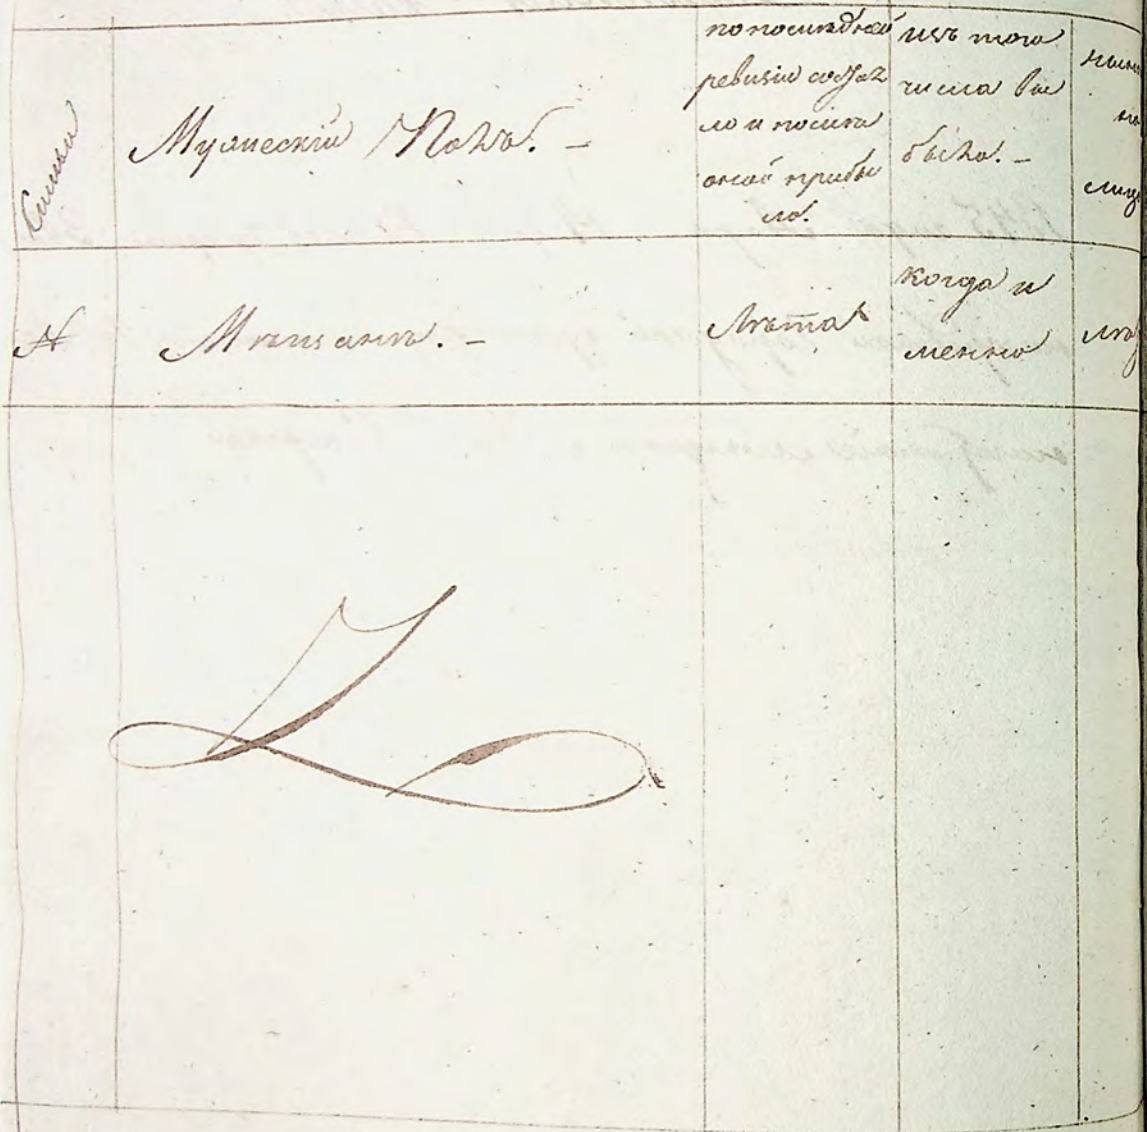 Семьи
Мужескій Полъ. -
по последней
ревизіи состоя
ло и после
оной прибы
ло.
изъ того
числа вы
было. -
№
Мѣщанъ. -
Лѣта
когда и
менно